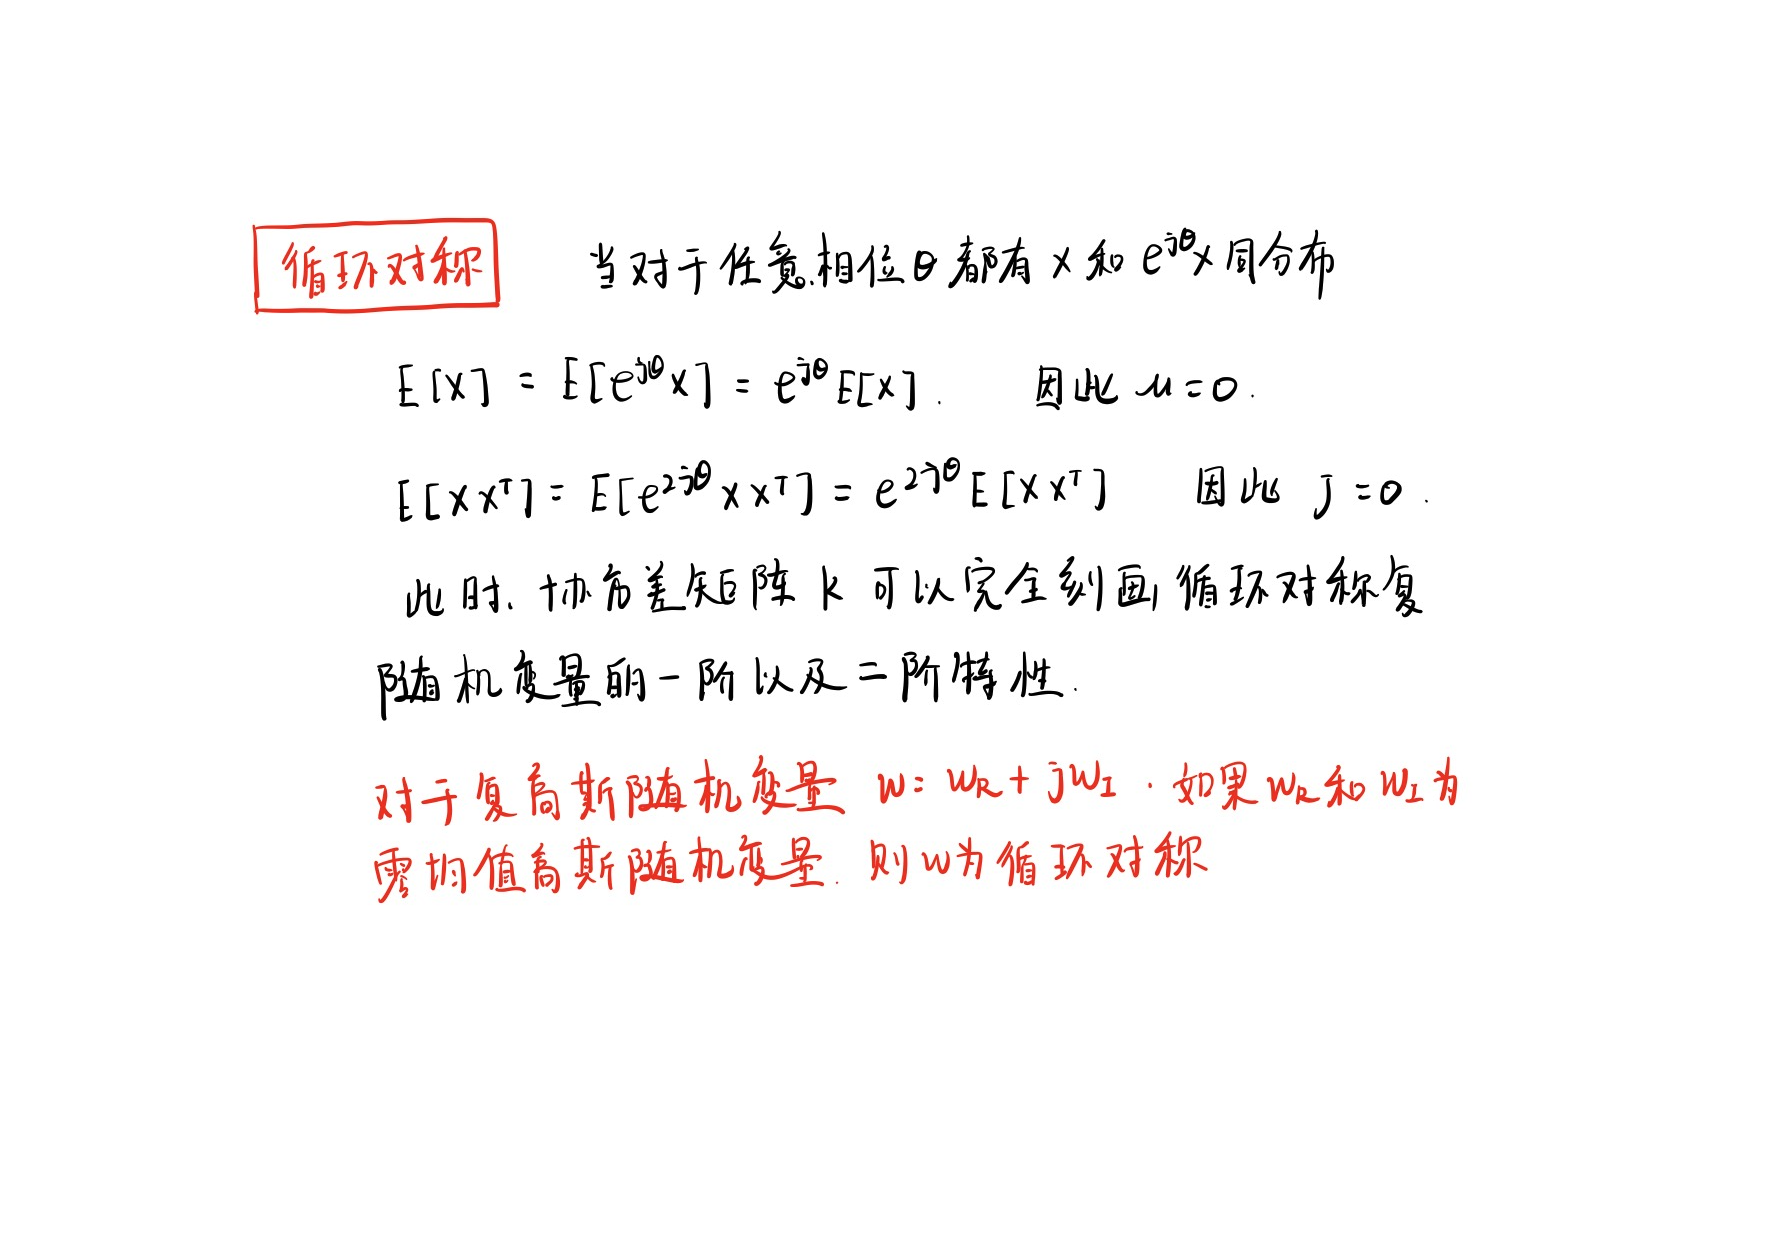 循环对称 当对于任意相位θ都有 x 和 e^{jθ}x 同分布
E[x] = E[e^{jθ}x] = e^{jθ}E[x]. 因此 μ=0.
E[xx^T] = E[e^{2jθ}xx^T] = e^{2jθ}E[xx^T] 因此 J=0.
此时, 协方差矩阵 K 可以完全刻画循环对称复
随机变量的一阶以及二阶特性.
对于复高斯随机变量 w = w_R + jw_I. 如果w_R和w_I为
零均值高斯随机变量. 则w为循环对称